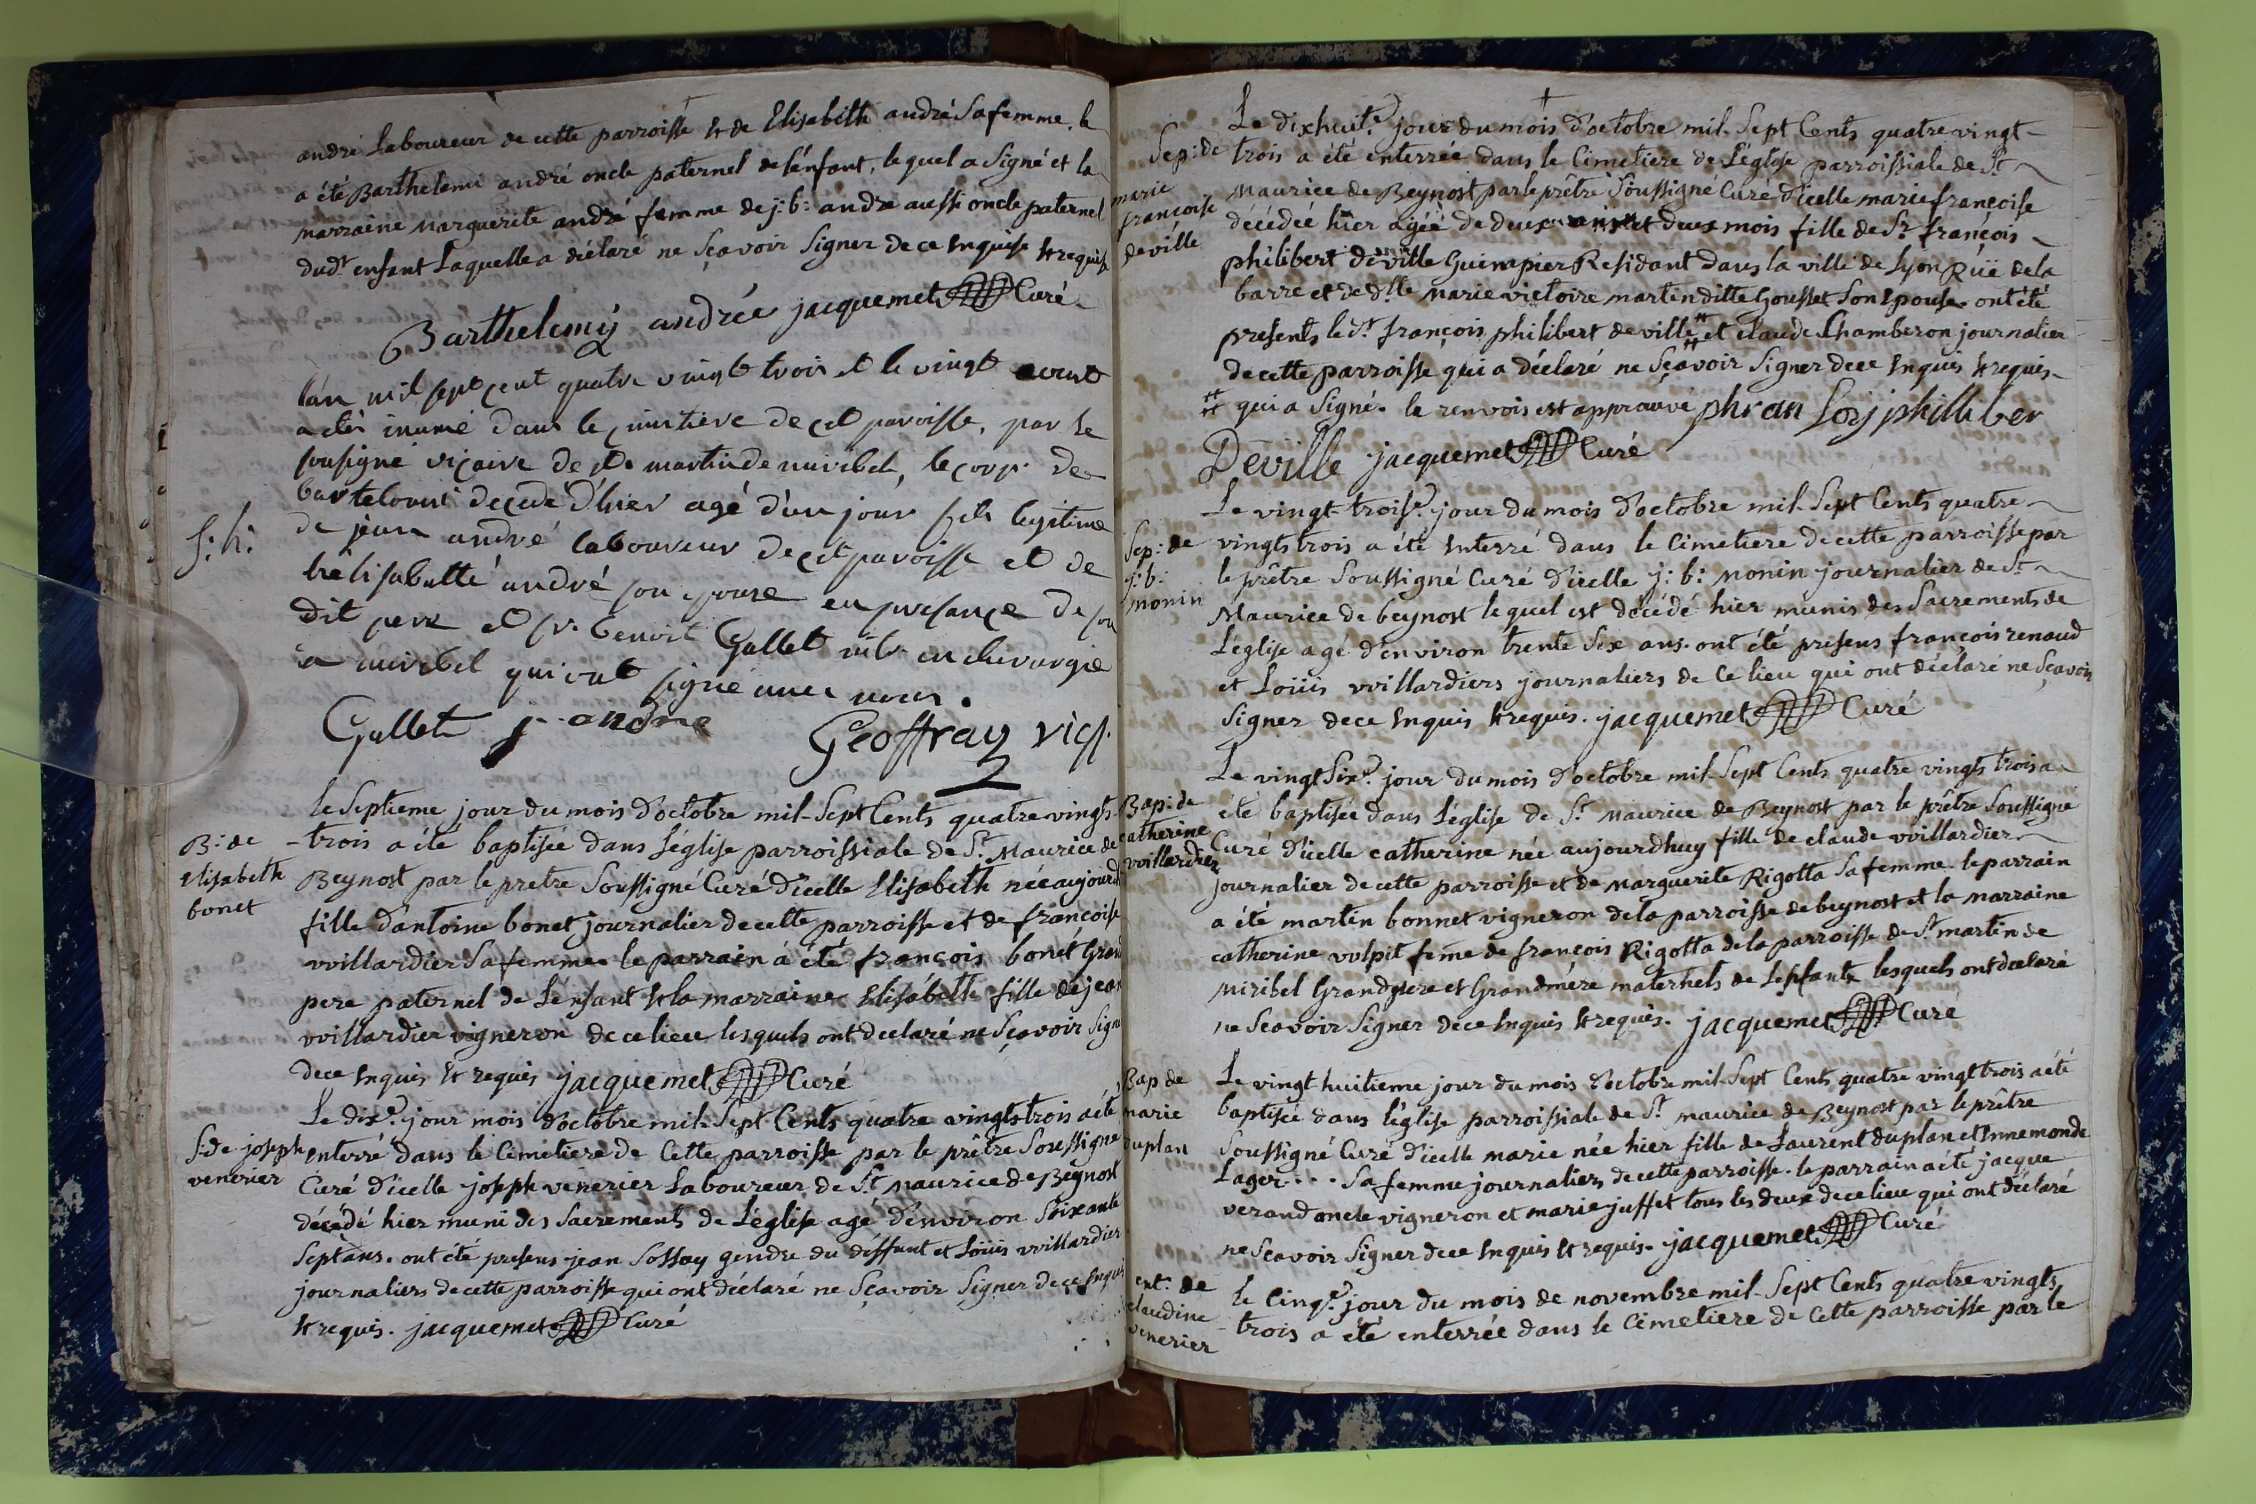 andré Laboureur de cette parroisse & de Elisabeth andré Sa femme. le
a été Barthelemi andré oncle paternel de l'enfant, le quel a Signé et la
marraine Marguerite andré femme de j: b: andré aussi oncle paternel
dudt enfant Laquelle a déclaré ne Sçavoir Signer de ce Enquise & requise
Barthelemy andrée jacquemet Curé
lan mil sept cent quatre vingt trois et le vingt aoust
a etés inumé dans le cimitiere de cet paroisse, par le
sousigné viçaire de st. martin de miribel, le corp. de
bartelomi deçede d'hier agé d'un jour fils legitime
S: h:
de jean andré laboureur de cet paroisse et de
helisabette andré son epouse en presançe de son
dit pere et sr. benoit Gallet en chirurgie
a miribel qui ont signé avec nous.
Gallet j. andre Geoffray vic.
B: de
Elisabeth
bonet
le Septieme jour du mois d'octobre mil-Sept Cents quatre vingts-
-trois a été baptisée dans L'église parroissiale de St. Maurice de
Beynost par le pretre Soussigné Curé d'icelle Elisabeth née aujourd
fille d'antoine bonet journalier de cette parroisse et de françoise
vvillardier Sa femme. le parrain à été françois bonet Grand
pere paternel de L'enfant & la marraine Elisabeth fille de jean
vvillardier vigneron de ce lieu lesquels ont declaré ne Sçavoir Signe
de ce Enquis & requis jacquemet Curé
S: de joseph
venerier
Le dixe. jour mois d'octobre mil-Sept Cents quatre vingts trois a été
enterré dans le Cimetiere de Cette parroisse par le prêtre Soussigné
Curé d'icelle joseph venerier Laboureur de St. Maurice de Beynost
décédé hier muni des Sacrements de L'église agé d'environ Soixante
Sept ans. ont été presens jean Sossoy gendre du déffunt et Loüis vvillardier
journaliers de cette parroisse qui ont déclaré ne Sçavoir Signer de ce Enquis
& requis. jacquemet Curé
Sep: de
marie
françoise
deville
Le dixhuite. jour du mois d'octobre mil-Sept Cents quatre vingt-
trois a été enterrée dans le Cimetiere de L'église parroissiale de St.
Maurice de Beynost par le prêtre Soussigné Curé d'icelle marie françoise
décédée hier agéé de deux ans et deux mois fille de Sr. françois
philibert deville Guimpier Residant dans la ville de Lyon Rüe de la
barre et de dlle marie victoire marten ditte Gousset Son Epouse. ont été
presents le Sr. françois philibert deville et claude Chamberon journalier
de cette parroisse qui a déclaré ne Sçavoir Signer de ce Enquis & requis.
qui a Signé. le renvois est approuvé phran Soij philliber
Deville jacquemet Curé
Sep: de
j: b:
monin
Le vingt-troise. jour du mois d'octobre mil-Sept Cents quatre
vingts trois a été Enterré dans le Cimetiere de cette parroisse par
le prêtre Soussigné Curé d'icelle j: b: monin journalier de St.
Maurice de beynost lequel est décédé hier munis des Sacrements de
L'église agé d'environ trente Six ans. ont été presens françois renaud
et Loüis vvillardiers journaliers de Ce lieu qui ont déclaré ne Sçavoir
Signer de ce Enquis & requis. jacquemet Curé
Bap: de
catherine
vvillardier
Le vingt Sixe. jour du mois d'octobre mil-Sept Cents quatre vingts trois a
été baptisée dans L'église de St. Maurice de Beynost par le prêtre Soussigné
Curé d'icelle catherine née aujourdhuy fille de claude vvillardier
journalier de cette parroisse et de Marguerite Rigotta Sa femme. le parrain
a été martin bonnet vigneron de la parroisse de beynost et la marraine
catherine volpit feme de françois Rigotta de la parroisse de St. martin de
Miribel Grandpere et Grandmére maternels de Lenfant lesquels ont déclaré
ne Scavoir Signer de ce Enquis & requis. jacquemet Curé
Bap de
marie
duplan
Le vingt huitieme jour du mois d'octobre mil-Sept Cents quatre vingt trois a été
baptisée dans l'église parroissiale de St. maurice de Beynost par le prêtre
Soussigné Curé d'icelle marie née hier fille de Laurent duplan et Ennemonde
Lager . . . Sa femme journaliers de cette parroisse. le parrain a été jacque
verand oncle vigneron et marie juffet tous les deux de ce lieu qui ont déclaré
ne Scavoir Signer de ce Enquis & requis. jacquemet Curé
ent: de
claudine
venerier
le Cinqe. jour du mois de novembre mil-Sept Cents quatre vingts
trois a été enterrée dans le Cimetiere de Cette parroisse par le